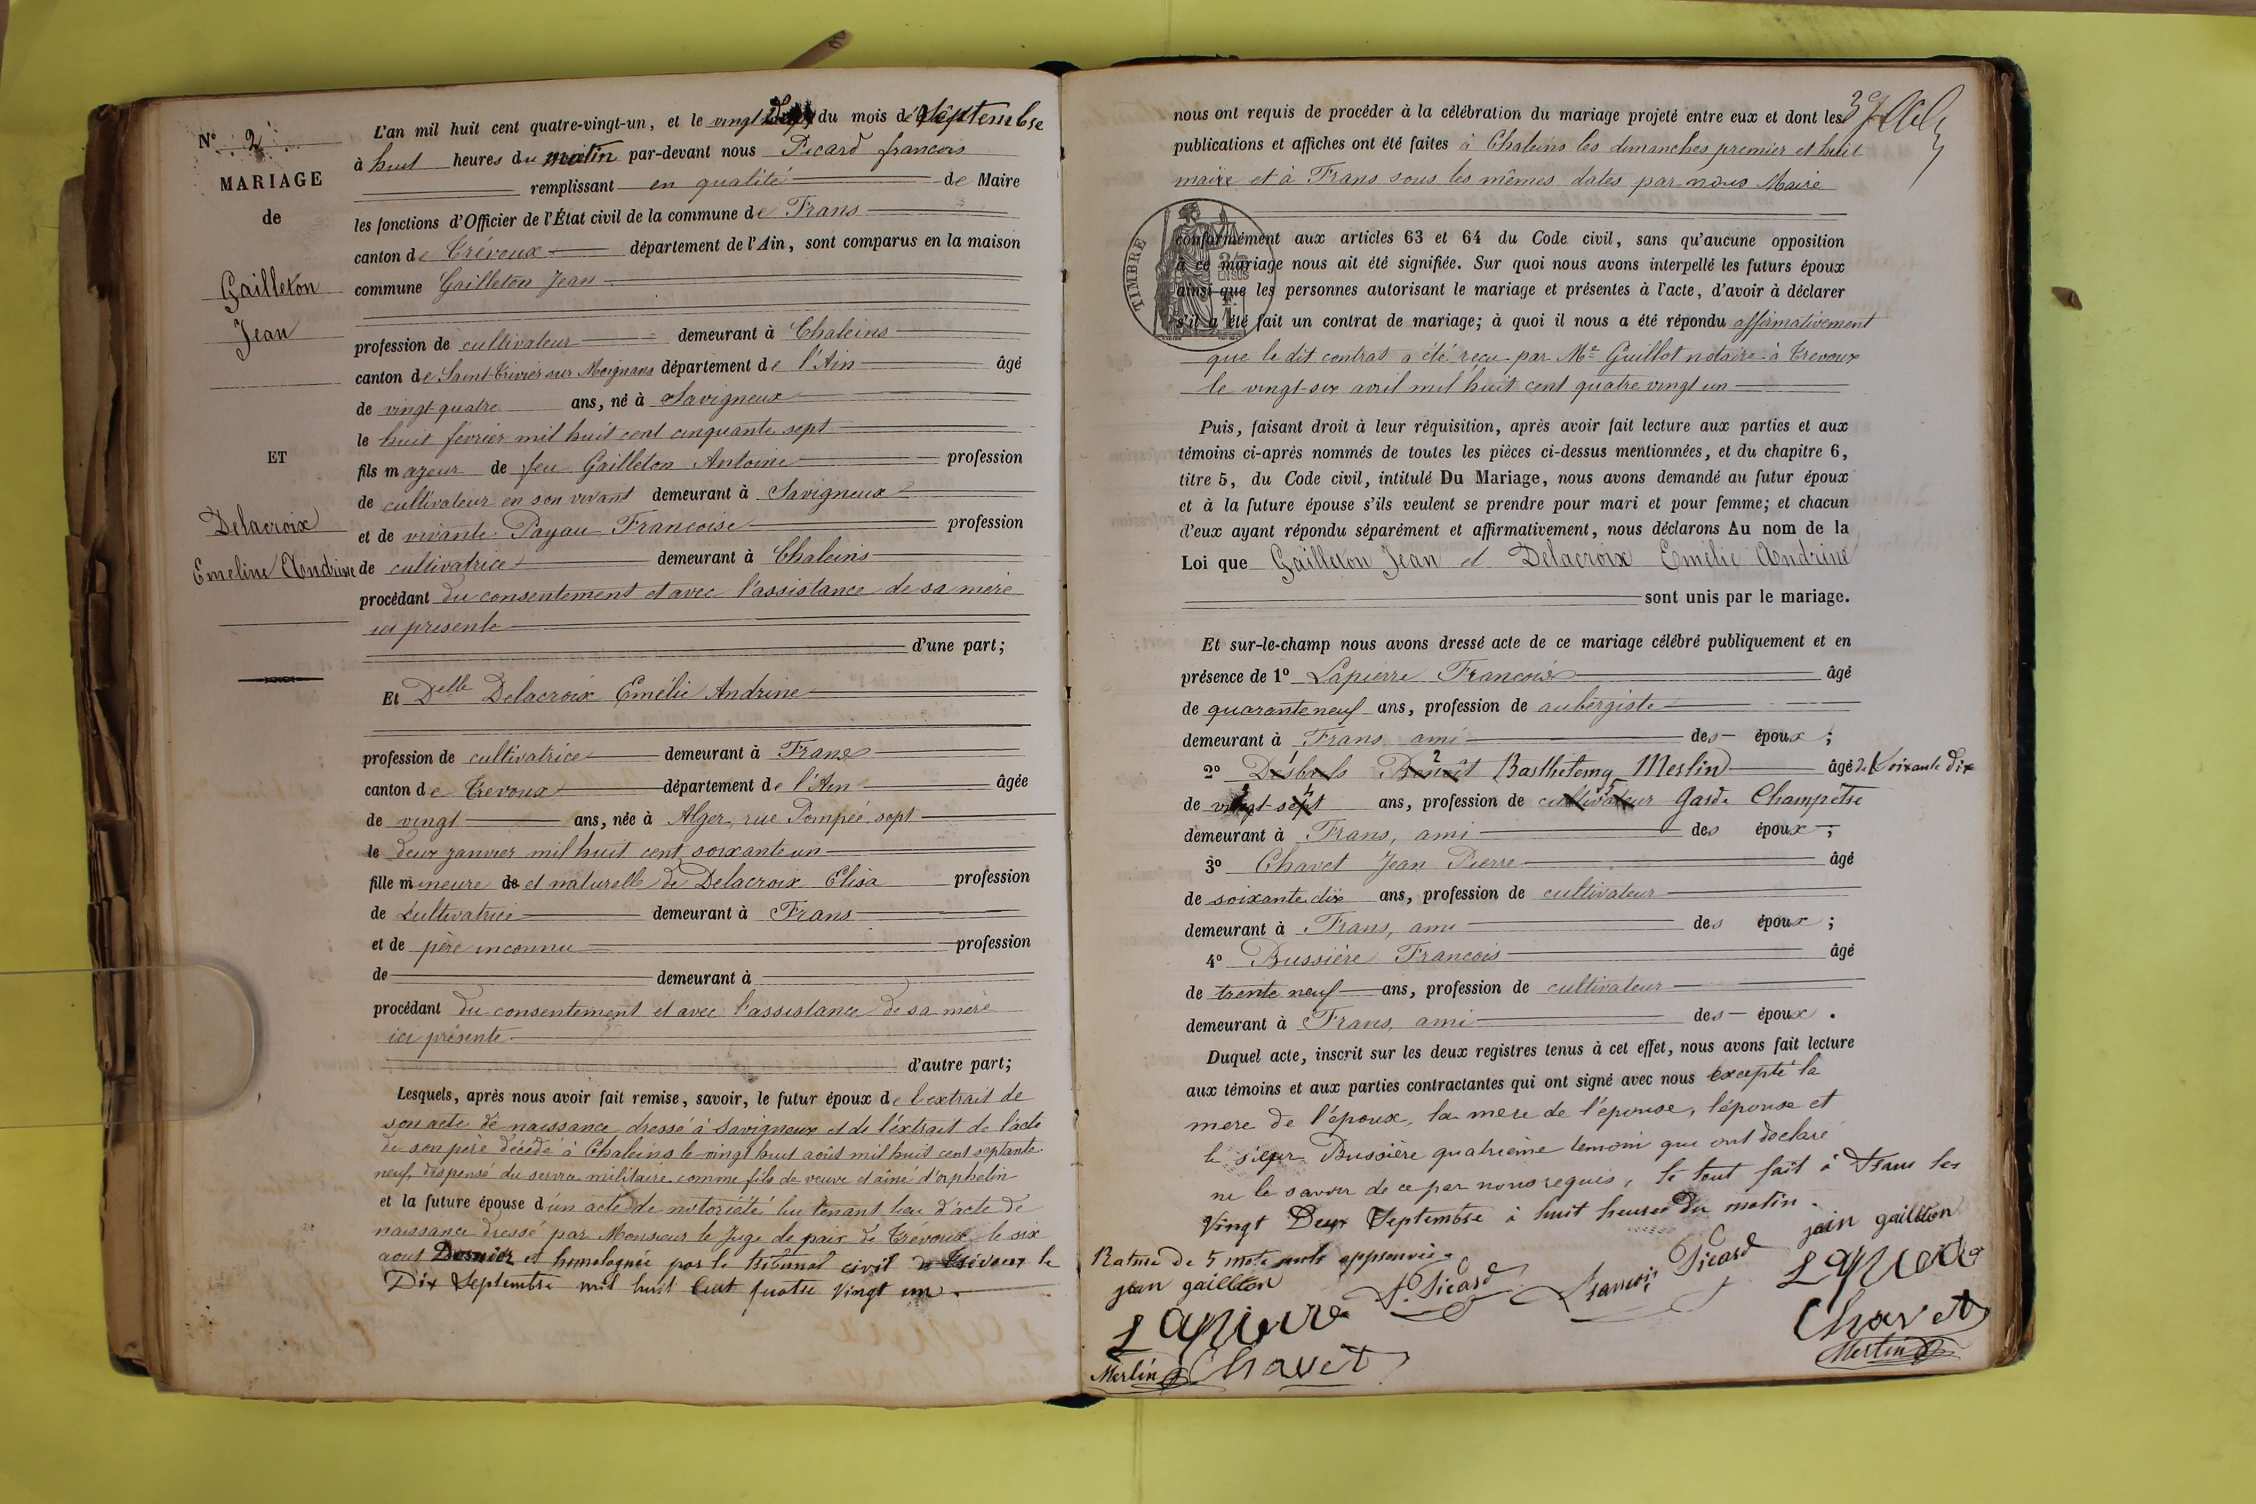 N° 2
MARIAGE
de
Gailleton
Jean
ET
Delacroix
Emeline Andrine
L'an mil huit cent quatre-vingt-un, et le vingt Deux du mois de Septembre
à huit heures du matin par-devant nous Picard francois
remplissant en qualité de Maire
les fonctions d'Officier de l'État civil de la commune de Frans
canton de Trévoux département de l'Ain, sont comparus en la maison
commune Gailleton Jean
profession de cultivateur demeurant à Chaleins
canton de Saint-Trivier sur Moignans département de l'Ain âgé
de vingt quatre ans, né à Savigneux
le huit février mil huit cent cinquante sept
fils majeur de feu Gailleton Antoine profession
de cultivateur en son vivant demeurant à Savigneux
et de vivante Payau Francoise profession
de cultivatrice demeurant à Chaleins
procédant du consentement et avec l'assistance de sa mère
ici présente
d'une part;
Et Delle Delacroix Emélie Andrine
profession de cultivatrice demeurant à Frans
canton de Trevoux département de l'Ain âgée
de vingt ans, née à Alger, rue Pompée, sept
le deux janvier mil huit cent soixante un
fille mineure de et naturelle de Delacroix Elisa profession
de Cultivatrice demeurant à Frans
et de père inconnu profession
de demeurant à
procédant du consentement et avec l'assistance de sa mère
ici présente
d'autre part;
Lesquels, après nous avoir fait remise, savoir, le futur époux de l'extrait de
son acte de naissance dressé à Savigneux et de l'extrait de l'acte
de son père décédé à Chaleins le vingt huit août mil huit cent septante
neuf, dispensé du service militaire comme fils de veuve et ainé d'orphelin
et la future épouse d'un acte de notoriété lui tenant lieu d'acte de
naissance dressé par Monsieur le Juge de paix de Trévoux le six
aout Dernier et homologuée par le tribunal civil de Trévoux le
Dix Septembre mil huit Cent quatre Vingt un.
nous ont requis de procéder à la célébration du mariage projeté entre eux et dont les
publications et affiches ont été faites à Chaleins les dimanches premier et huit
maire et à Frans sous les mêmes dates par nous Maire
TIMBRE
conformément aux articles 63 et 64 du Code civil, sans qu'aucune opposition
à ce mariage nous ait été signifiée. Sur quoi nous avons interpellé les futurs époux
ainsi que les personnes autorisant le mariage et présentes à l'acte, d'avoir à déclarer
s'il a été fait un contrat de mariage; à quoi il nous a été répondu affirmativement
que le dit contrat a été reçu par Me Guillot notaire à Trevoux
le vingt-six avril mil huit cent quatre vingt un
Puis, faisant droit à leur réquisition, après avoir fait lecture aux parties et aux
témoins ci-après nommés de toutes les pièces ci-dessus mentionnées, et du chapitre 6,
titre 5, du Code civil, intitulé Du Mariage, nous avons demandé au futur époux
et à la future épouse s'ils veulent se prendre pour mari et pour femme; et chacun
d'eux ayant répondu séparément et affirmativement, nous déclarons Au nom de la
Loi que Gailleton Jean et Delacroix Emélie Andrine
sont unis par le mariage.
Et sur-le-champ nous avons dressé acte de ce mariage célébré publiquement et en
présence de 1° Lapierre Francois âgé
de quarante neuf ans, profession de aubergiste
demeurant à Frans ami des époux;
2° Desbrels Benoît Barthelemy Merlin âgé de Soixante dix
de vingt-sept ans, profession de cultivateur Garde Champêtre
demeurant à Frans, ami des époux;
3° Chavet Jean Pierre âgé
de soixante dix ans, profession de cultivateur
demeurant à Frans, ami des époux;
4° Bussière Francois âgé
de trente neuf ans, profession de cultivateur
demeurant à Frans, ami des époux.
Duquel acte, inscrit sur les deux registres tenus à cet effet, nous avons fait lecture
aux témoins et aux parties contractantes qui ont signé avec nous Excepté la
mere de l'époux, la mere de l'épouse, l'épouse et
le sieur Bussière quatrième temoin que ont declaré
ne le savoir de ce par nous requis, le tout fait à Frans les
Vingt Deux Septembre à huit heures Du matin.
Rature de 5 mots nuls approuvés
jean gailleton
P. Picard
francois Picard
jean gailleton
Lapierre
Lapierre
Chavet
Merlin
Merlin
Chavet